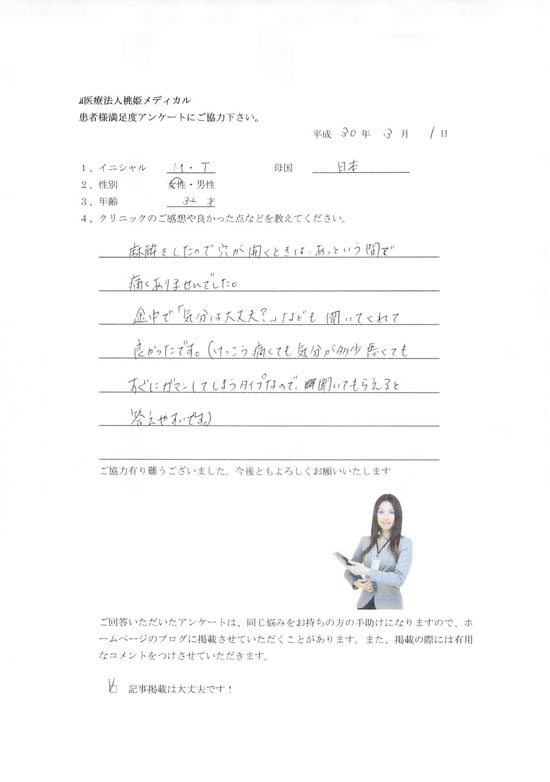 医療法人桃姫メディカル
患者様満足度アンケートにご協力下さい。
平成 30 年 3 月 1 日
1、イニシャル M・T 母国 日本
2、性別 女性・男性
3、年齢 32 才
4、クリニックのご感想や良かった点などを教えてください。
麻酔をしたので穴が開くときは、あっという間で
痛くありませんでした。
途中で「気分は大丈夫?」なども聞いてくれて
良かったです。(けっこう痛くても気分が多少悪くても
すぐにガマンしてしまうタイプなので、聞いてもらえると
答えやすいです。)
ご協力有り難うございました。今後ともよろしくお願いいたします
ご回答いただいたアンケートは、同じ悩みをお持ちの方の手助けになりますので、ホ
ームページのブログに掲載させていただくことがあります。また、掲載の際には有用
なコメントをつけさせていただきます。
記事掲載は大丈夫です!